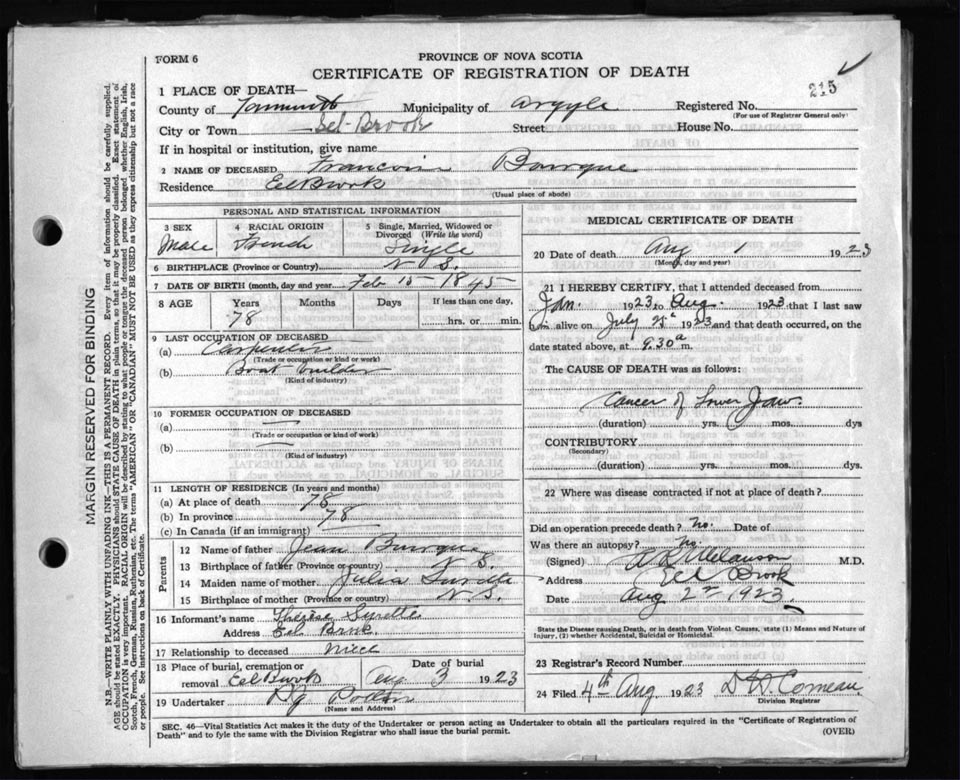 FORM 6
PROVINCE OF NOVA SCOTIA
CERTIFICATE OF REGISTRATION OF DEATH
215
1 PLACE OF DEATH—
County of Yarmouth Municipality of Argyle Registered No.
(For use of Registrar General only)
City or Town Eel Brook Street House No.
If in hospital or institution, give name
2 NAME OF DECEASED Francois Bourque
Residence Eel Brook
(Usual place of abode)
PERSONAL AND STATISTICAL INFORMATION
3 SEX 4 RACIAL ORIGIN 5 Single, Married, Widowed or Divorced (Write the word)
Male French Single
6 BIRTHPLACE (Province or Country) N S.
7 DATE OF BIRTH (month, day and year) Feb 15 - 1845
8 AGE Years Months Days If less than one day,
78 hrs. or min.
9 LAST OCCUPATION OF DECEASED
(a) Carpenter
(Trade or occupation or kind of work)
(b) Boat builder
(Kind of industry)
10 FORMER OCCUPATION OF DECEASED
(a) —
(Trade or occupation or kind of work)
(b) —
(Kind of industry)
11 LENGTH OF RESIDENCE (In years and months)
(a) At place of death 78
(b) In province 78
(c) In Canada (if an immigrant)
Parents
12 Name of father Jean Bourque
13 Birthplace of father (Province or country) N S.
14 Maiden name of mother Julia Surette
15 Birthplace of mother (Province or country) N.S.
16 Informant's name Therese Surette
Address Eel Brook
17 Relationship to deceased niece
18 Place of burial, cremation or removal Eel Brook Date of burial Aug 3 1923
19 Undertaker
(Name and Address)
MEDICAL CERTIFICATE OF DEATH
20 Date of death Aug 1 1923
(Month, day and year)
21 I HEREBY CERTIFY, that I attended deceased from
Jan. 1923 to Aug. 1923 that I last saw
him alive on July 1923 and that death occurred, on the
date stated above, at 9.30 a m.
The CAUSE OF DEATH was as follows:
Cancer of Lower Jaw.
(duration) yrs. mos. dys
CONTRIBUTORY
(Secondary)
(duration) yrs. mos. dys.
22 Where was disease contracted if not at place of death?
Did an operation precede death? No. Date of
Was there an autopsy? No.
(Signed) Melanson M.D.
Address Eel Brook
Date Aug 2nd 1923
State the Disease causing Death, or in death from Violent Causes, state (1) Means and Nature of
Injury, (2) whether Accidental, Suicidal or Homicidal.
23 Registrar's Record Number
24 Filed 4th Aug 1923 D W. Comeau
Division Registrar
SEC. 46—Vital Statistics Act makes it the duty of the Undertaker or person acting as Undertaker to obtain all the particulars required in the "Certificate of Registration of
Death" and to fyle the same with the Division Registrar who shall issue the burial permit.
(OVER)
MARGIN RESERVED FOR BINDING
N.B.—WRITE PLAINLY WITH UNFADING INK—THIS IS A PERMANENT RECORD. Every item of information should be carefully supplied.
AGE should be stated EXACTLY. PHYSICIANS should STATE CAUSE OF DEATH in plain terms, so that it may be properly classified. Exact statement of
OCCUPATION is very important. RACIAL ORIGIN will be described by stating to what people or tongue the deceased person belonged, whether English, Irish,
Scotch, French, German, Russian, Ruthenian, etc. The terms "AMERICAN" or "CANADIAN" MUST NOT BE USED as they express citizenship but not a race
or people. See instructions on back of Certificate.